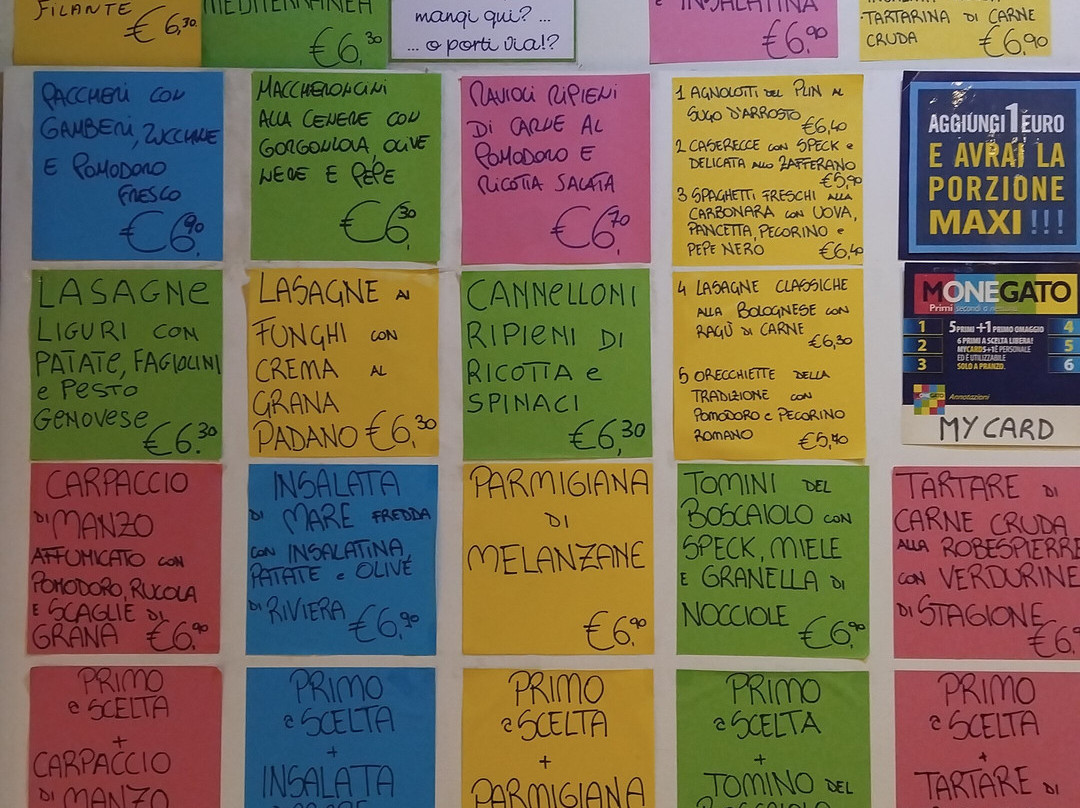 FILANTE
€6,30
MEDITERRANEA
€6,30
mangi qui? ...
... o porti via!?
E INSALATINA
€6,90
TARTARINA DI CARNE
CRUDA
€6,90
PACCHERI CON
GAMBERI, ZUCCHINE
E POMODORO
FRESCO
€6,90
MACCHERONCINI
ALLA CENERE CON
GORGONZOLA, OLIVE
NERE E PEPE
€6,30
RAVIOLI RIPIENI
DI CARNE AL
POMODORO E
RICOTTA SALATA
€6,70
1 AGNOLOTTI DEL PLIN AL
SUGO D'ARROSTO
€6,40
2 CASERECCE CON SPECK E
DELICATA ALLO ZAFFERANO
€5,90
3 SPAGHETTI FRESCHI ALLA
CARBONARA CON UOVA,
PANCETTA, PECORINO E
PEPE NERO €6,40
AGGIUNGI 1 EURO
E AVRAI LA
PORZIONE
MAXI!!!
LASAGNE
LIGURI CON
PATATE, FAGIOLINI
E PESTO
GENOVESE
€6.30
LASAGNE AI
FUNGHI CON
CREMA AL
GRANA
PADANO €6,30
CANNELLONI
RIPIENI DI
RICOTTA E
SPINACI
€6,30
4 LASAGNE CLASSICHE
ALLA BOLOGNESE CON
RAGÙ DI CARNE
€6,30
5 ORECCHIETTE DELLA
TRADIZIONE CON
POMODORO E PECORINO
ROMANO €5,70
MONEGATO
Primi secondi o
1 5 PRIMI +1 PRIMO OMAGGIO 4
6 PRIMI A SCELTA LIBERA!
2 MYCARDS+1 È PERSONALE 5
ED È UTILIZZABILE
3 SOLO A PRANZO. 6
MONEGATO Annotazioni
MY CARD
CARPACCIO
DI MANZO
AFFUMICATO CON
POMODORO, RUCOLA
E SCAGLIE DI
GRANA €6,90
INSALATA
DI MARE FREDDA
CON INSALATINA,
PATATE E OLIVE
DI RIVIERA €6,90
PARMIGIANA
DI
MELANZANE
€6,90
TOMINI DEL
BOSCAIOLO CON
SPECK, MIELE
E GRANELLA DI
NOCCIOLE
€6,90
TARTARE DI
CARNE CRUDA
ALLA ROBESPIERRE
CON VERDURINE
DI STAGIONE
€6,
PRIMO
a SCELTA
+
CARPACCIO
DI MANZO
PRIMO
a SCELTA
+
INSALATA
PRIMO
a SCELTA
+
PARMIGIANA
PRIMO
a SCELTA
+
TOMINO DEL
PRIMO
a SCELTA
+
TARTARE DI